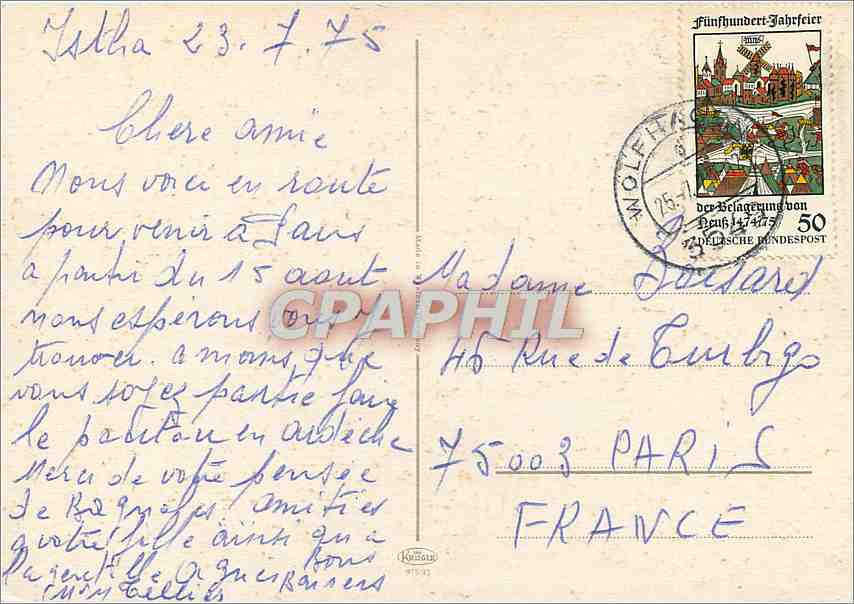 Istha 23.7.75
Chere amie
Nous voici en route
pour venir à Paris
a partir du 15 aout
nous espérons vous y
trouver. a moins que
vous soyez partie faire
le en ardèche
Merci de votre pensée
de Bagnoles. amitiés
a votre fille ainsi qu'a
la gentille Agnes Bons
Baisers
MM Tellier
Fünfhundert-Jahrfeier
der Belagerung von
Neuß 1474/75
50
DEUTSCHE BUNDESPOST
WOLFHAGEN
Madame Boisard
45 Rue de Turbigo
75003 PARIS
FRANCE
CPAPHIL
KRÜGER